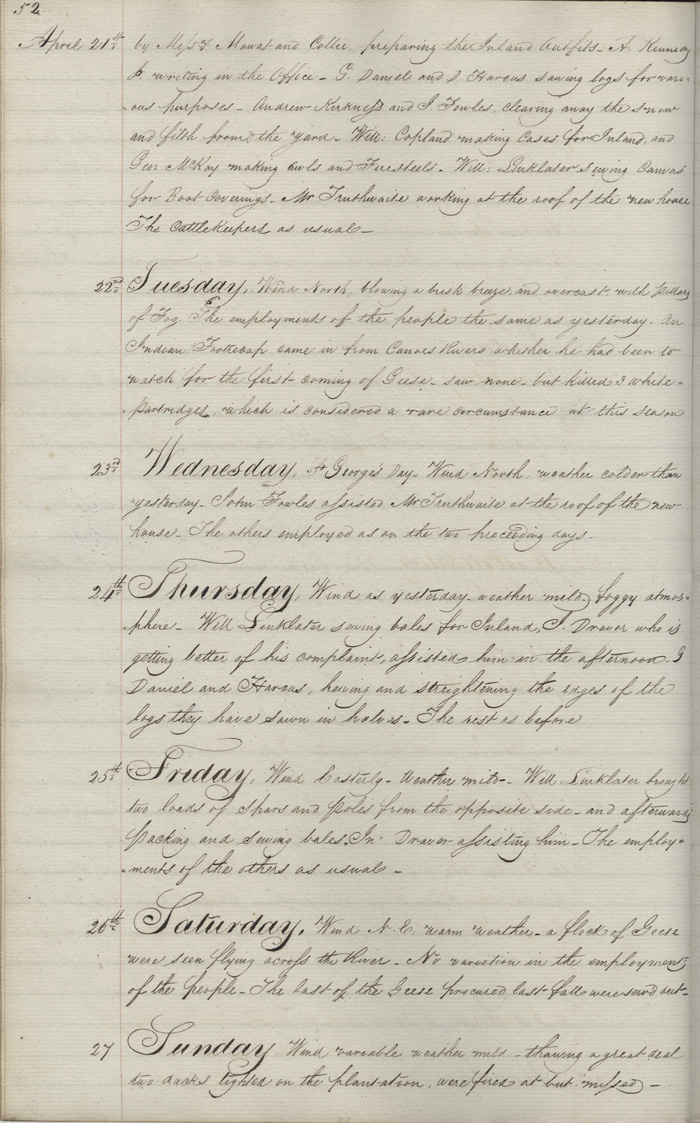 52
April 21st by Messrs Mowat and Collie, preparing the Inland Outfits - A. Kennedy
Jr. writing in the Office - G. Daniel and D Harcus sawing logs for vari-
ous purposes - Andrew Kirkness and J Fowles, clearing away the snow
and filth from the yard - Will: Copland making Cases for Inland, and
Geo: McKay making awls and Firesteels - Will: Linklater sewing Canvas
for Boat Coverings - Mr Truthwaite working at the roof of the new house
The Cattlekeepers as usual -
22nd Tuesday, Wind North, blowing a brisk breeze, and overcast, with Pillars
of Fog. The employments of the people the same as yesterday. An
Indian came in from Canoes Rivers whither he had been to
watch for the first coming of Geese - saw none - but killed 3 white
Partridges, which is considered a rare circumstance at this season
23rd Wednesday, St George's Day - Wind North weather colder than
yesterday - John Fowles assisted Mr Truthwaite at the roof of the new
house - The others employed as on the two preceeding days -
24th Thursday, Wind as yesterday - weather mild, foggy atmos-
phere - Will Linklater sewing bales for Inland, J. Draver who is
getting better of his complaint, assisted him in the afternoon. G
Daniel and Harcus, hewing and streightening the edges of the
logs they have sawn in halves - The rest as before
25th Friday, Wind Easterly - Weather mild - Will Linklater brought
two loads of Spars and Poles from the opposite side - and afterwards
packing and sewing bales, Jn: Draver assisting him - The employ-
ments of the others as usual -
26th Saturday, Wind N.E. warm weather - a flock of Geese
were seen flying across the River - No variation in the employments
of the people - The last of the Geese procured last fall were serv'd out -
27 Sunday Wind variable weather mild - thawing a great deal
two ducks lighted on the plantation, were fired at but missed -